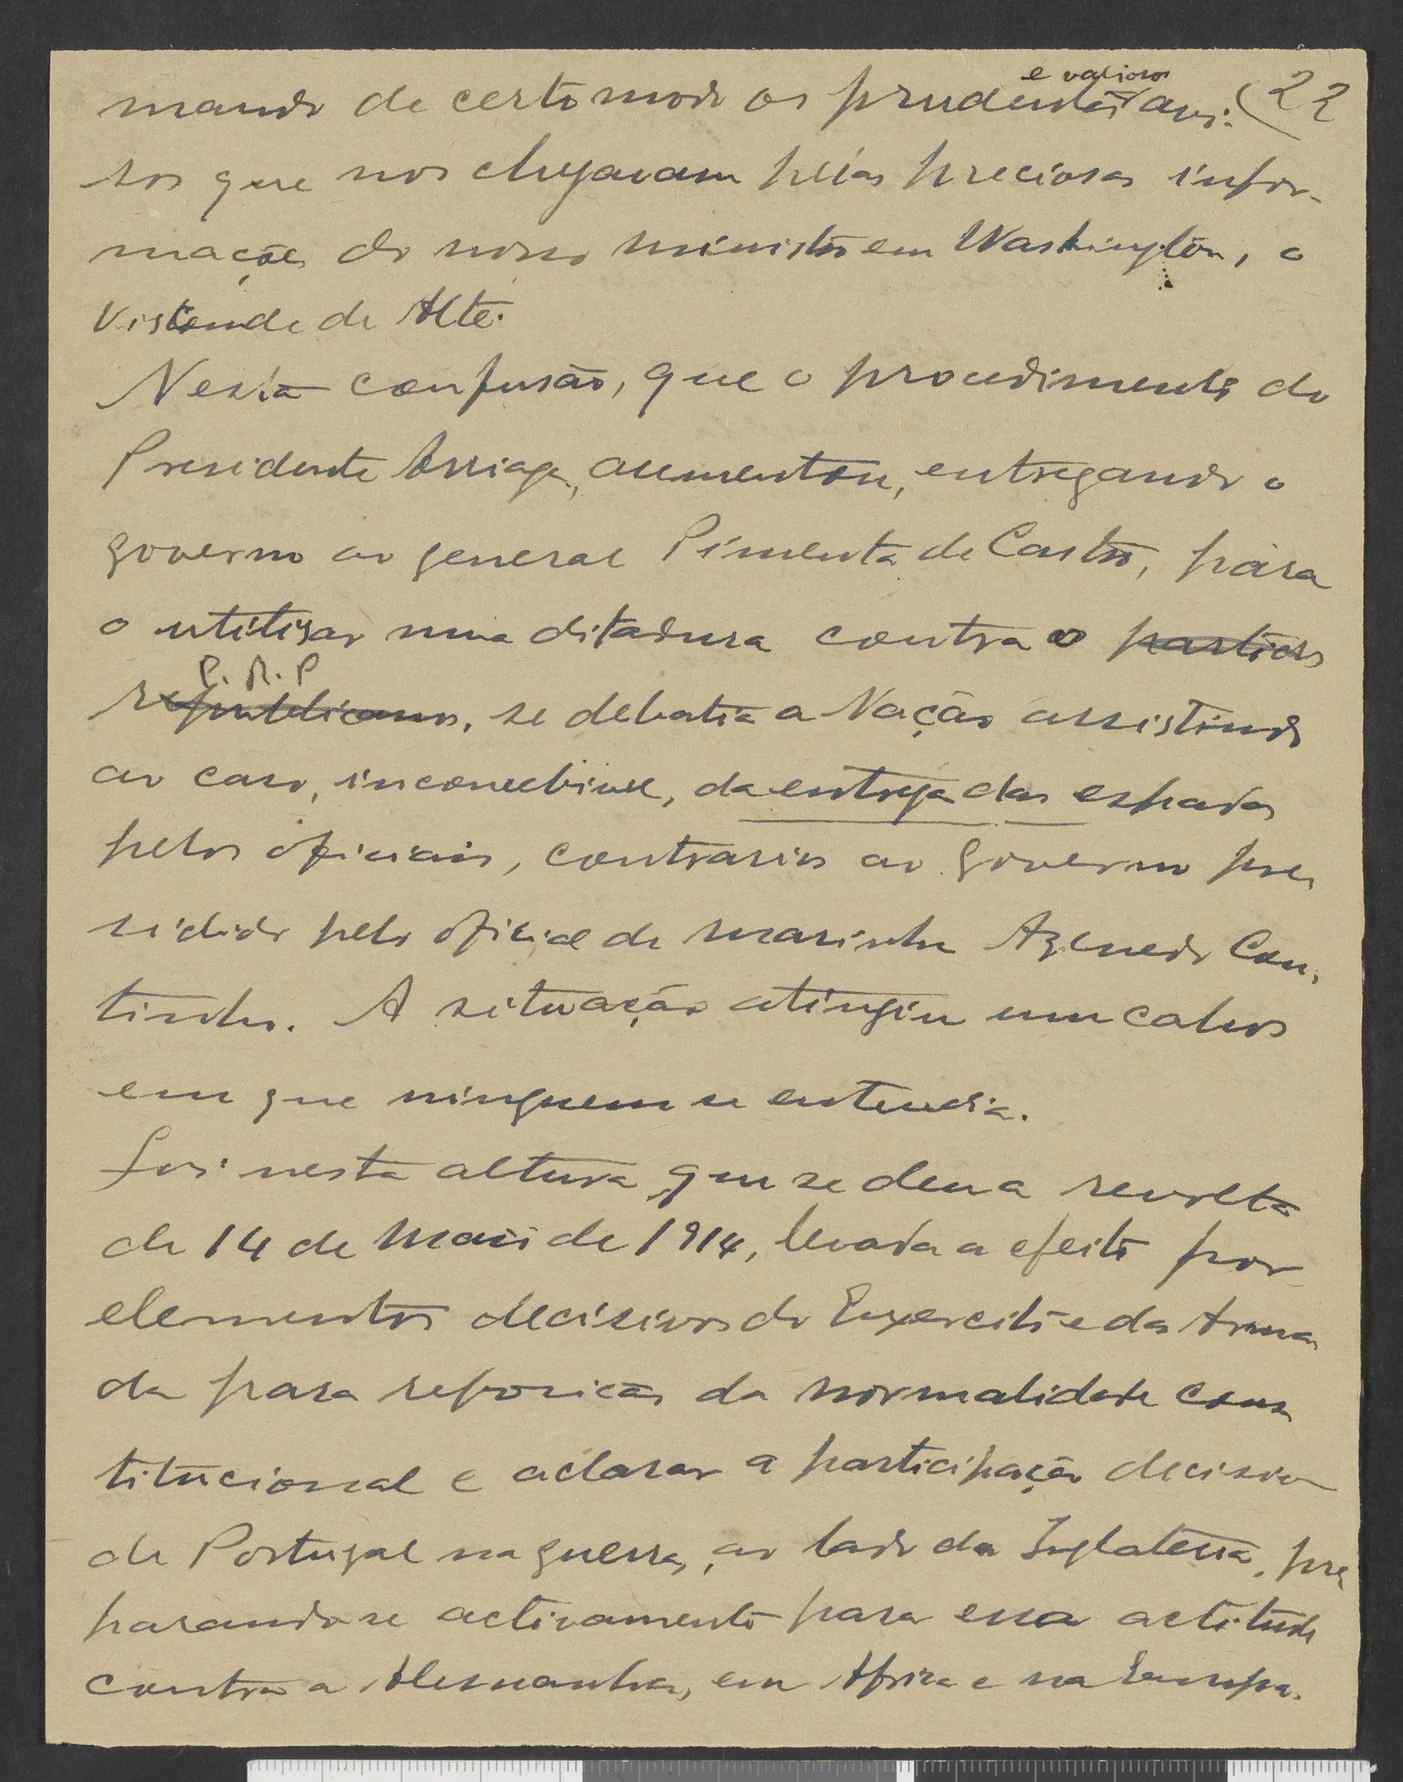 e valiosos
mando de certo modo os prudentes avi- (22
sos que nos chegavam pelas preciosas infor-
mações do nosso ministro em Washington, o
Visconde de Alte.
Nesta confusão, que o procedimento do
Presidente Arriaga, aumentou, entregando o
governo ao general Pimenta de Castro, para
o utilisar numa ditadura contra o partidos
P. R. P
republicanos, se debatia a Nação assistindo
ao caso, inconcebivel, da entrega das espadas
pelos oficiais, contrarios ao governo pre
sidido pelo oficial de marinha Azevedo Cou,
tinho. A situação atingiu um cahos
em que ninguem se entendia.
Foi nesta altura que se deu a revolta
de 14 de Maio de 1914, levada a efeito por
elementos decisivos do Exercito e da Arma
da para reposição da normalidade cons
titucional e aclarar a participação decisiva
de Portugal na guerra, ao lado da Inglaterra, pre
parando-se activamente para essa actitude
contra a Alemanha, em Africa e na Europa.